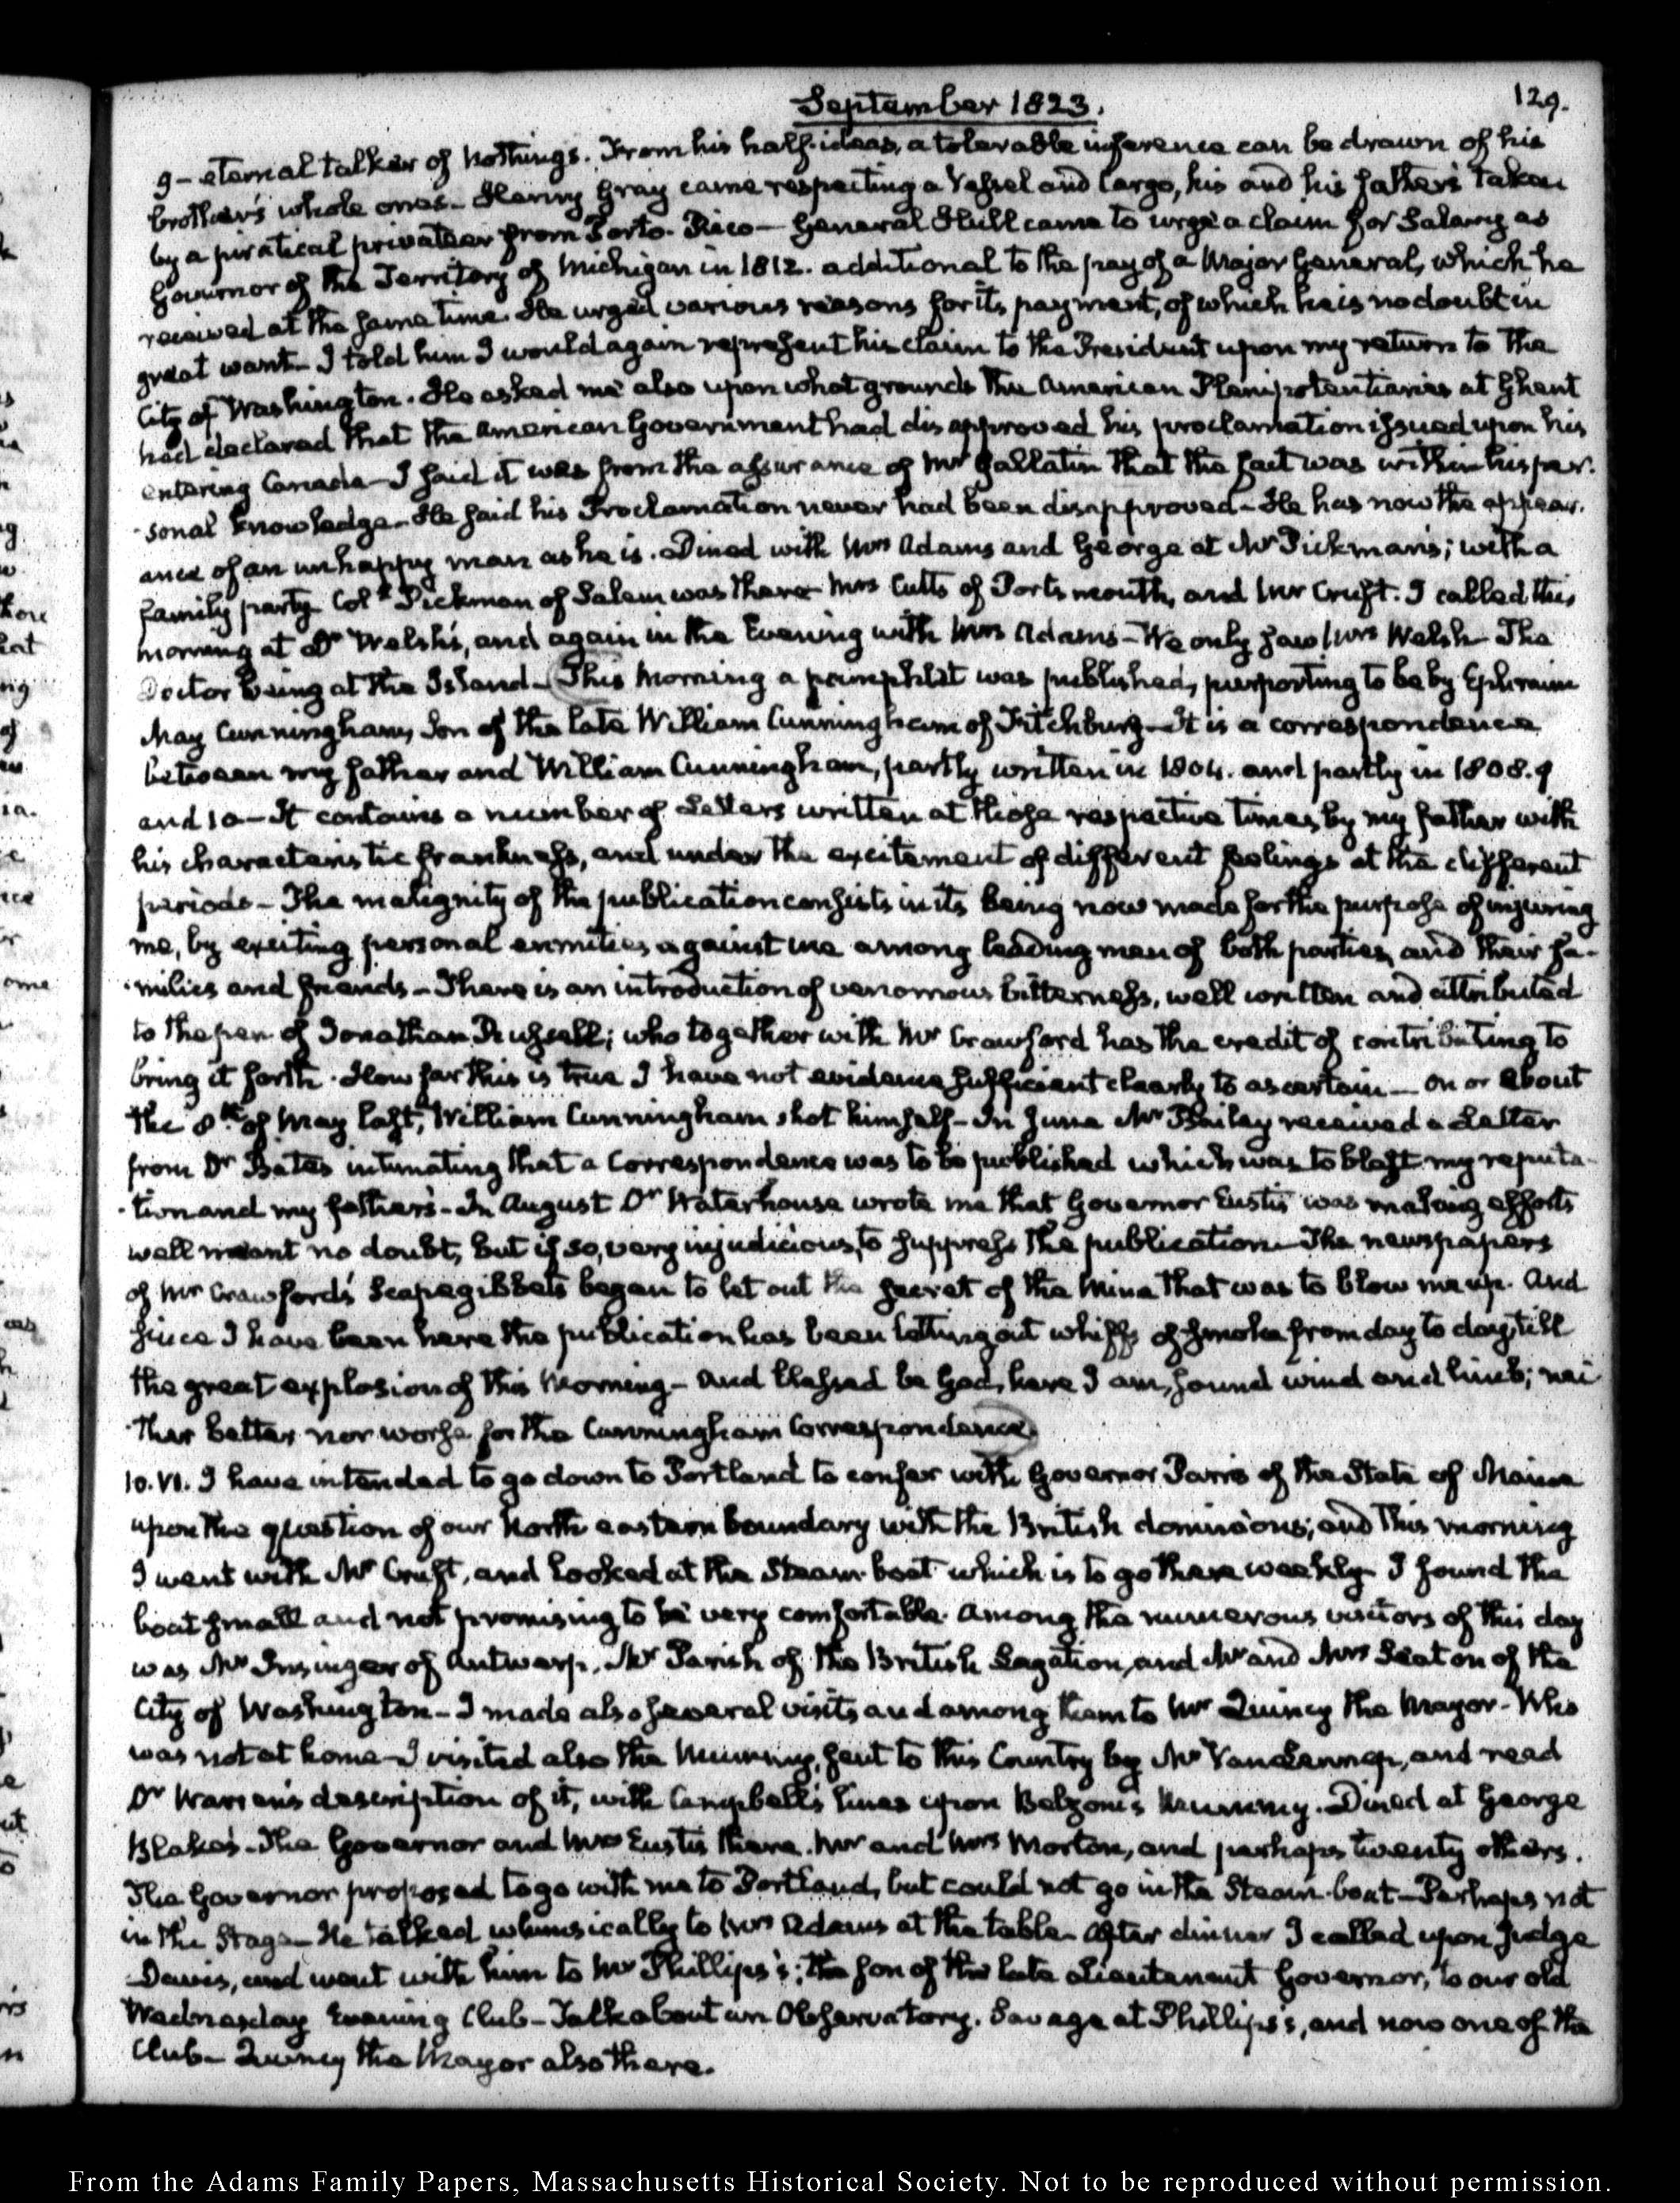 September 1823.
129.
9 - eternal talker of Nothings. From his half-ideas, a tolerable inference can be drawn of his
brother's whole ones - Henry Gray came respecting a Vessel and Cargo, his and his father's taken
by a piratical privateer from Porto-Rico - General Hull came to urge a claim for Salary as
Governor of the Territory of Michigan in 1812. additional to the pay of a Major General, which he
received at the same time. He urged various reasons for its payment, of which he is no doubt in
great want - I told him I would again represent his claim to the President upon my return to the
City of Washington. He asked me also upon what grounds the American Plenipotentiaries at Ghent
had declared that the American Government had disapproved his proclamation issued upon his
entering Canada - I said it was from the assurance of Mr Gallatin that the fact was within his per-
-sonal knowledge - He said his Proclamation never had been disapproved - He has now the appear-
ance of an unhappy man as he is. Dined with Mrs Adams and George at Mr Pickman's; with a
family party Coll Pickman of Salem was there Mrs Cutts of Portsmouth, and Mr Cruft. I called this
morning at Dr Welsh's, and again in the Evening with Mrs Adams - We only saw Mrs Welsh - The
Doctor being at the Island - This Morning a pamphlet was published, purporting to be by Ephraim
May Cunningham, Son of the late William Cunningham of Fitchburg - It is a correspondence
between my father and William Cunningham, partly written in 1804. and partly in 1808. 9
and 10 - It contains a number of Letters written at those respective times, by my father with
his characteristic frankness, and under the excitement of different feelings at the different
periods - The malignity of the publication consists in its being now made for the purpose of injuring
me, by exciting personal enmities against me among leading men of both parties, and their fa-
-milies and friends - There is an introduction of venomous bitterness, well written and attributed
to the pen of Jonathan Russell; who together with Mr Crawford has the credit of contributing to
bring it forth. How far this is true I have not evidence sufficient clearly to ascertain - On or about
the 8th of May last, William Cunningham shot himself - In June Mr Bailey received a Letter
from Dr Bates intimating that a Correspondence was to be published which was to blast my reputa-
-tion and my father's - In August Dr Waterhouse wrote me that Governor Eustis was making efforts
well meant no doubt, but if so, very injudicious, to suppress the publication - The newspapers
of Mr Crawford's Scapegibbets began to let out the secret of the Mine that was to blow me up. And
since I have been here the publication has been letting out whiffs of smoke from day to day, till
the great explosion of this Morning - And blessed be God, here I am, sound wind and limb; nei
-ther better nor worse for the Cunningham Correspondence
10. VI. I have intended to go down to Portland to confer with Governor Parris of the State of Maine
upon the question of our North eastern boundary with the British dominions; and this morning
I went with Mr Cruft, and looked at the Steam-boat which is to go there weekly - I found the
boat small and not promising to be very comfortable. Among the numerous visitors of this day
was Mr Insinger of Antwerp, Mr Parish of the British Legation, and Mr and Mrs Seaton of the
City of Washington - I made also several visits and among them to Mr Quincy the Mayor - Who
was not at home - I visited also the Mummy, sent to this Country by Mr Van Lennep, and read
Dr Warren's description of it, with Campbell's lines upon Belzoni's Mummy. Dined at George
Blake's - The Governor and Mrs Eustis there. Mr and Mrs Morton, and perhaps twenty others.
The Governor proposed to go with me to Portland, but could not go in the Steam-boat - Perhaps not
in the Stage - He talked whimsically to Mrs Adams at the table - After dinner I called upon Judge
Davis, and went with him to Mr Phillips's; the son of the late Lieutenant Governor, to our old
Wednesday Evening Club - Talk about an Observatory. Savage at Phillips's, and now one of the
Club - Quincy the Mayor also there.
From the Adams Family Papers, Massachusetts Historical Society. Not to be reproduced without permission.